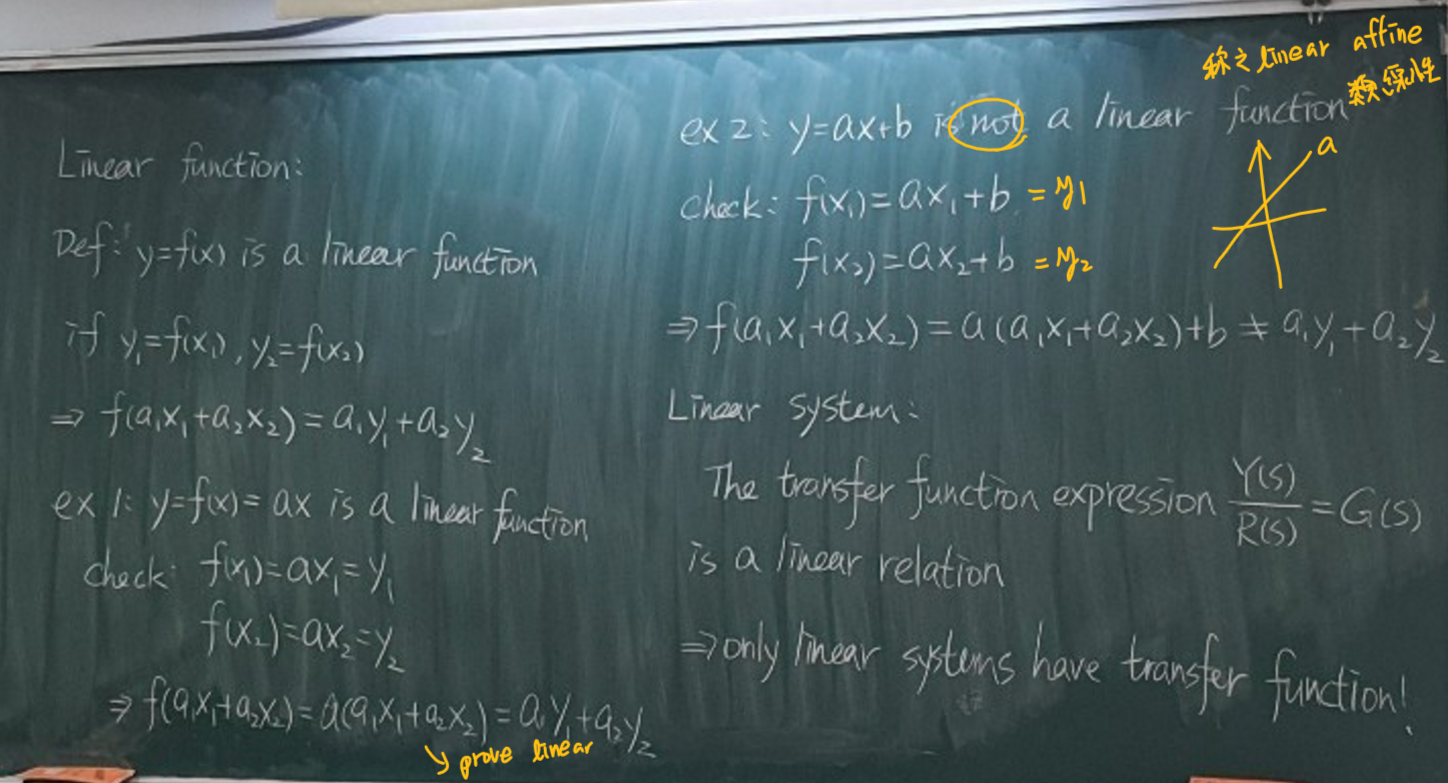 Linear function:
Def: y=f(x) is a linear function
if y₁=f(x₁), y₂=f(x₂)
⇒ f(a₁x₁+a₂x₂)=a₁y₁+a₂y₂
ex 1: y=f(x)=ax is a linear function
check: f(x₁)=ax₁=y₁
f(x₂)=ax₂=y₂
⇒ f(a₁x₁+a₂x₂)=a(a₁x₁+a₂x₂)=a₁y₁+a₂y₂
↘ prove linear
称之 linear affine
類線性
ex 2: y=ax+b is not a linear function
a
check: f(x₁)=ax₁+b =y1
f(x₂)=ax₂+b =y₂
⇒ f(a₁x₁+a₂x₂)=a(a₁x₁+a₂x₂)+b ≠ a₁y₁+a₂y₂
Linear system:
The transfer function expression Y(s)/R(s)=G(s)
is a linear relation
⇒ only linear systems have transfer function!